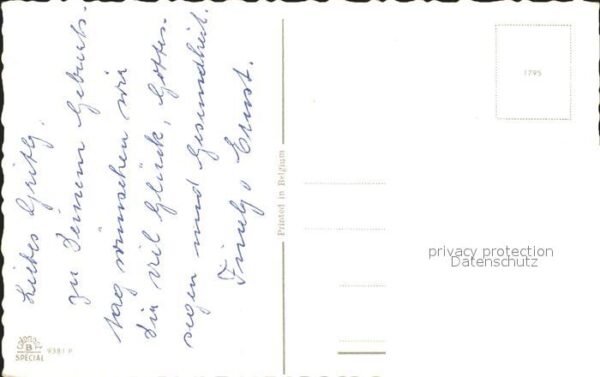 Liebes Gritly.
zu Deinem Geburts-
tag wünschen wir
Dir vil Glück, Gottes-
segen und Gesundheit.
Ernst.
Printed in Belgium
1795
privacy protection
Datenschutz
B
SPECIAL
9381 P